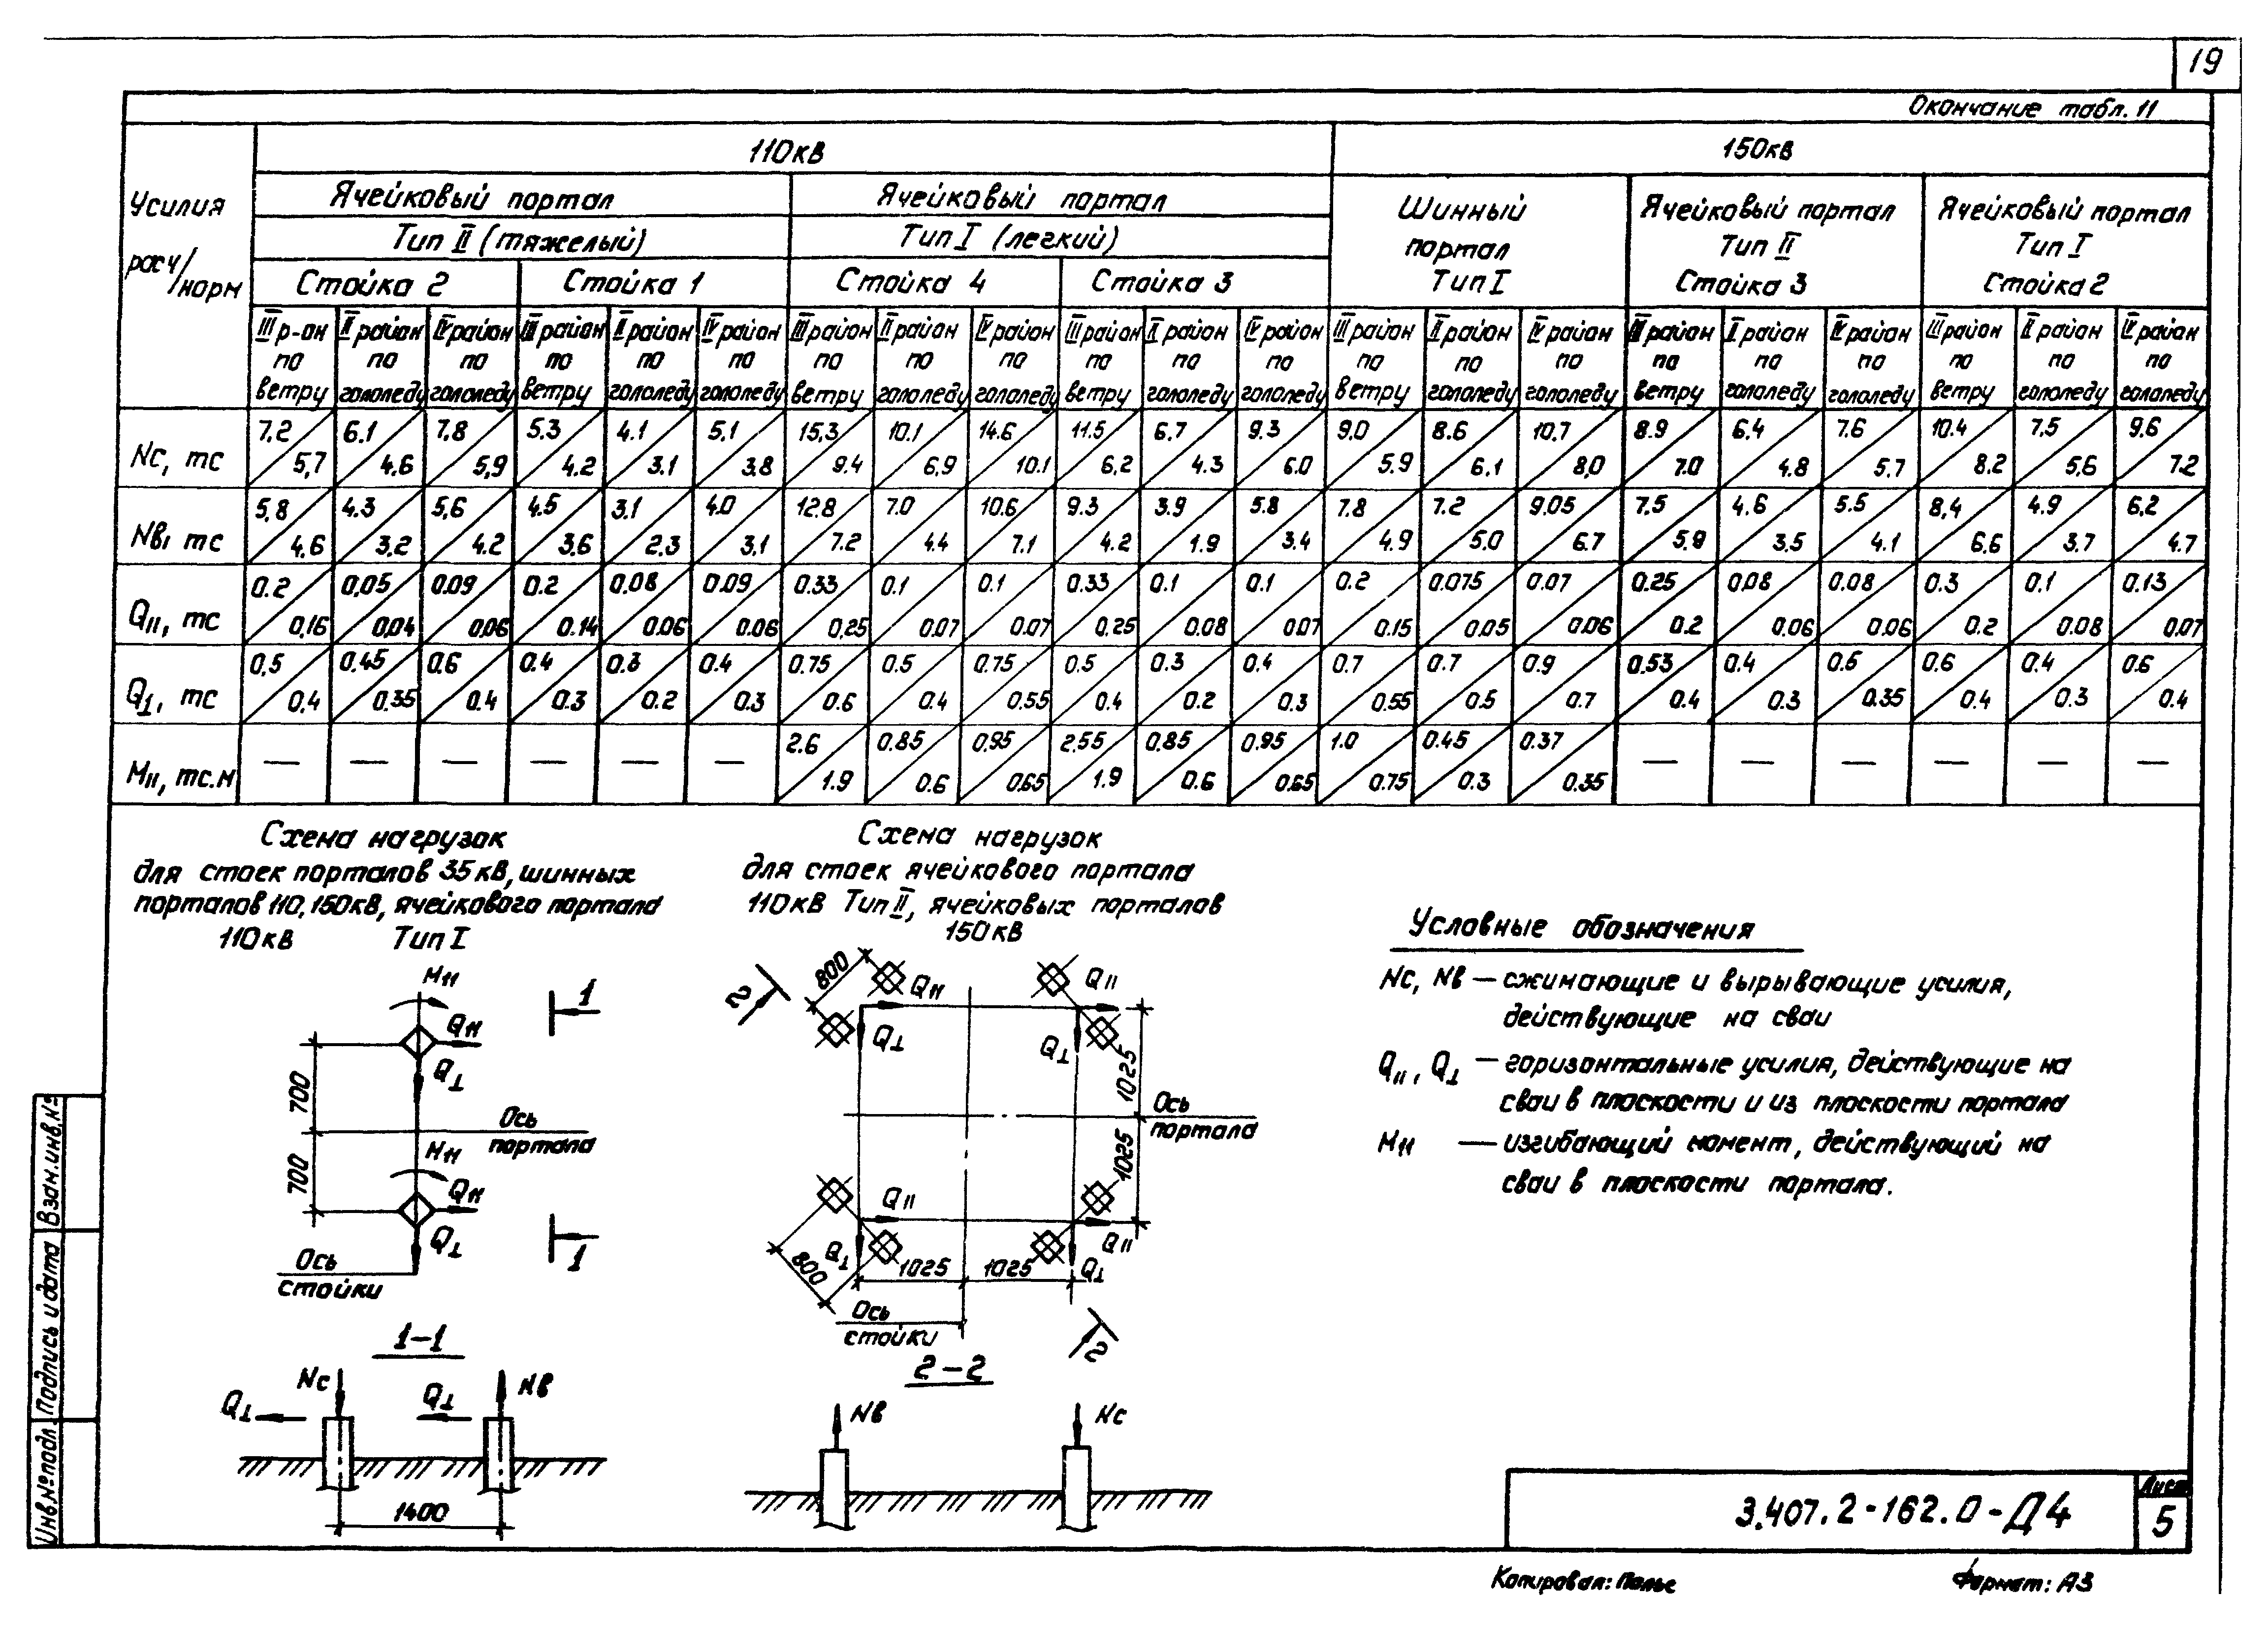 19
Окончание табл. 11
Усилия
расч/норм
110кВ
150кВ
Ячейковый портал
Ячейковый портал
Тип II (тяжелый)
Тип I (легкий)
Стойка 2
Стойка 1
Стойка 4
Стойка 3
Шинный
портал
Тип I
Ячейковый портал
Тип II
Стойка 3
Ячейковый портал
Тип I
Стойка 2
III р-он по ветру
II район по гололеду
IV район по гололеду
III район по ветру
II район по гололеду
IV район по гололеду
III район по ветру
II район по гололеду
IV район по гололеду
III район по ветру
II район по гололеду
IV район по гололеду
III район по ветру
II район по гололеду
IV район по гололеду
III район по ветру
II район по гололеду
IV район по гололеду
III район по ветру
II район по гололеду
IV район по гололеду
Nс, тс 7,2/5,7 6.1/4.6 7,8/5,9 5.3/4.2 4.1/3.1 5,1/3.8 15,3/9.4 10.1/6.9 14.6/10.1 11.5/6,2 6.7/4.3 9.3/6.0 9,0/5.9 8.6/6.1 10.7/8,0 8.9/7.0 6.4/4.8 7.6/5.7 10.4/8.2 7,5/5,6 9.6/7.2
Nв, тс 5,8/4,6 4.3/3,2 5,6/4.2 4.5/3,6 3,1/2.3 4.0/3,1 12.8/7.2 7.0/4.4 10.6/7.1 9.3/4.2 3.9/1.9 5.8/3.4 7.8/4.9 7.2/5.0 9,05/6.7 7.5/5.9 4.6/3.5 5.5/4.1 8,4/6.6 4.9/3.7 6,2/4.7
Q||, тс 0.2/0,16 0,05/0,04 0.09/0,06 0.2/0.14 0.08/0.06 0.09/0.06 0.33/0,25 0.1/0.07 0.1/0.07 0.33/0.25 0.1/0.08 0.1/0.07 0.2/0.15 0.075/0.05 0.07/0.06 0.25/0.2 0.08/0.06 0.08/0.06 0.3/0.2 0.1/0.08 0.13/0.07
Q⊥, тс 0,5/0,4 0.45/0.35 0.6/0.4 0.4/0.3 0.3/0.2 0.4/0.3 0.75/0.6 0.5/0.4 0.75/0.55 0.5/0.4 0.3/0.2 0.4/0.3 0.7/0.55 0.7/0.5 0.9/0.7 0.53/0.4 0.4/0.3 0.5/0.35 0.6/0.4 0.4/0.3 0.6/0.4
M||, тс.м — — — — — — 2.6/1.9 0.85/0.6 0,95/0.65 2.55/1.9 0.85/0.6 0.95/0.65 1.0/0.75 0.45/0.3 0.37/0.35 — — — — — —
Схема нагрузок
для стоек порталов 35кВ, шинных
порталов 110,150кВ, ячейкового портала
110кВ Тип I
M||
Q||
Q⊥
700
Ось
портала
M||
Q||
700
Q⊥
Ось
стойки
1
1
1-1
Nс
Nв
Q⊥
Q⊥
1400
Схема нагрузок
для стоек ячейкового портала
110кВ Тип II, ячейковых порталов
150кВ
2
800
Q||
Q||
Q⊥
Q⊥
1025
Ось
портала
1025
Q||
Q⊥
Q||
800
1025
1025
Q⊥
Ось
стойки
2
2-2
Nв
Nс
Условные обозначения
Nс, Nв — сжимающие и вырывающие усилия,
действующие на сваи
Q||, Q⊥ — горизонтальные усилия, действующие на
сваи в плоскости и из плоскости портала
M|| — изгибающий момент, действующий на
сваи в плоскости портала.
Взам.инв.№
Подпись и дата
Инв.№подл.
3.407.2-162.0-Д4
Лист
5
Копировал:
Формат: А3